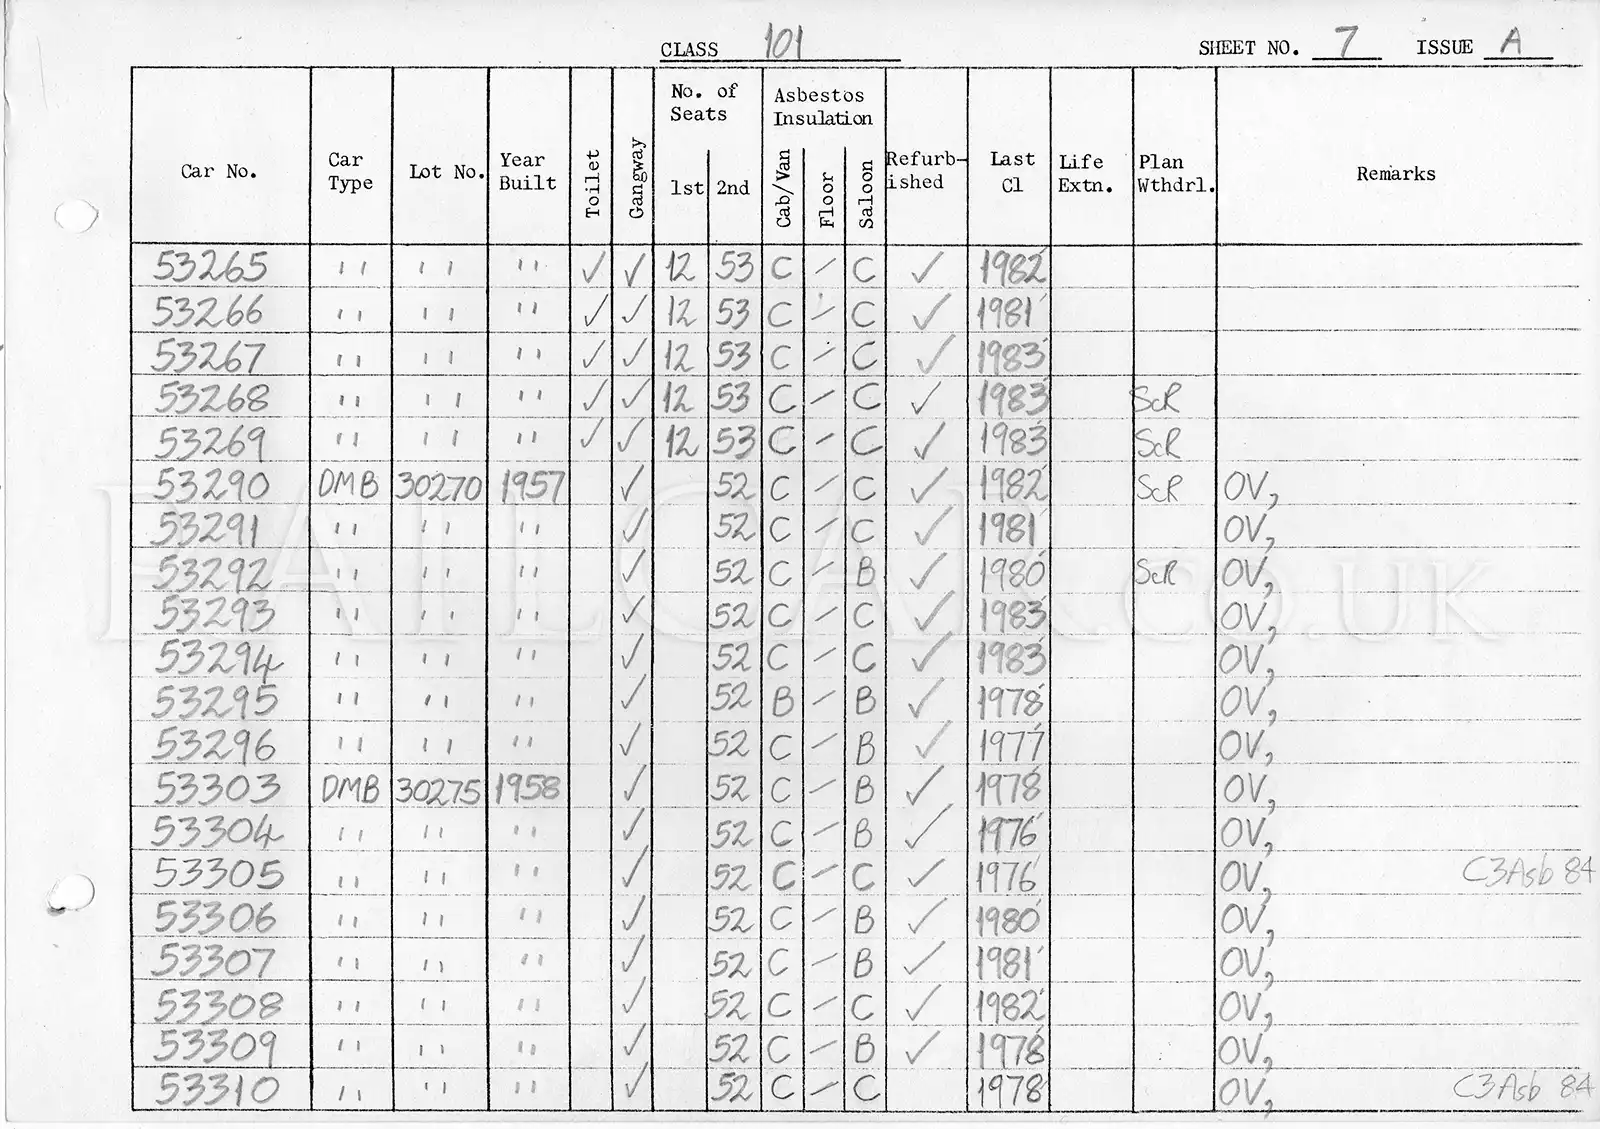 CLASS 101 SHEET NO. 7 ISSUE A
Car No. Car Type Lot No. Year Built Toilet Gangway No. of Seats 1st 2nd Asbestos Insulation Cab/Van Floor Saloon Refurb-ished Last Cl Life Extn. Plan Wthdrl. Remarks
53265 " " " ✓ ✓ 12 53 C – C ✓ 1982
53266 " " " ✓ ✓ 12 53 C – C ✓ 1981
53267 " " " ✓ ✓ 12 53 C – C ✓ 1983
53268 " " " ✓ ✓ 12 53 C – C ✓ 1983 ScR
53269 " " " ✓ ✓ 12 53 C – C ✓ 1983 ScR
53290 DMB 30270 1957 ✓ 52 C – C ✓ 1982 ScR OV,
53291 " " " ✓ 52 C – C ✓ 1981 OV,
53292 " " " ✓ 52 C – B ✓ 1980 ScR OV,
53293 " " " ✓ 52 C – C ✓ 1983 OV,
53294 " " " ✓ 52 C – C ✓ 1983 OV,
53295 " " " ✓ 52 B – B ✓ 1978 OV,
53296 " " " ✓ 52 C – B ✓ 1977 OV,
53303 DMB 30275 1958 ✓ 52 C – B ✓ 1978 OV,
53304 " " " ✓ 52 C – B ✓ 1976 OV,
53305 " " " ✓ 52 C – C ✓ 1976 OV, C3Asb 84
53306 " " " ✓ 52 C – B ✓ 1980 OV,
53307 " " " ✓ 52 C – B ✓ 1981 OV,
53308 " " " ✓ 52 C – C ✓ 1982 OV,
53309 " " " ✓ 52 C – B ✓ 1978 OV,
53310 " " " ✓ 52 C – C 1978 OV, C3Asb 84
RAILCAR.CO.UK